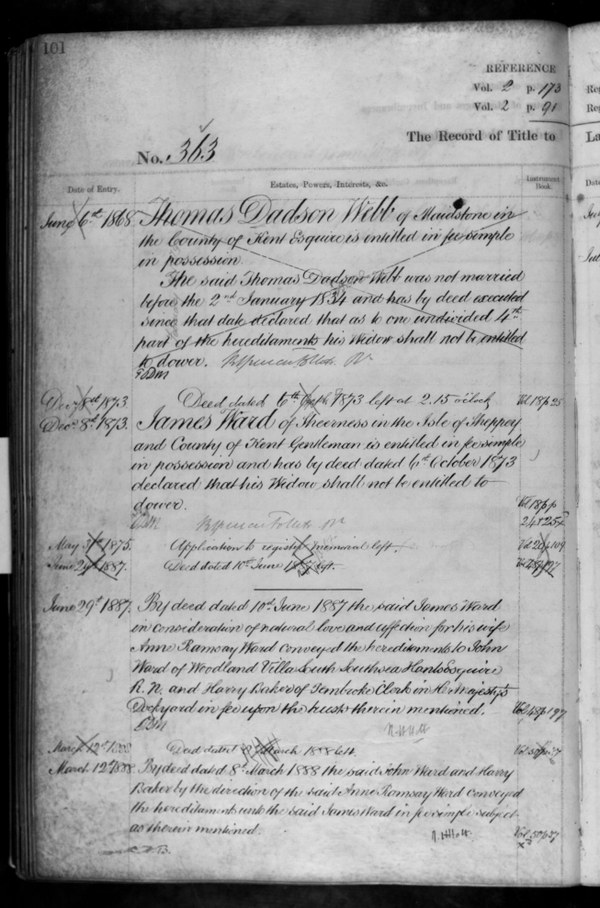 101
REFERENCE
Vol. 2 p. 173
Vol. 2 p. 91
The Record of Title to
No. 363
Date of Entry.
Estates, Powers, Interests, &c.
Instrument Book.
June 6th 1868. Thomas Dadson Webb of Maidstone in
the County of Kent Esquire is entitled in fee simple
in possession
The said Thomas Dadson Webb was not married
before the 2nd January 1834 and has by deed executed
since that date declared that as to one undivided 4th
part of the hereditaments his Widow shall not be entitled
to dower.
Dec 8th 1873 Deed dated 6th 1873 left at 2.15 o'clock Vol 18 p 25
Decr 8th 1873. James Ward of Sheerness in the Isle of Sheppey
and County of Kent Gentleman is entitled in fee simple
in possession and has by deed dated 6th October 1873
declared that his Widow shall not be entitled to
dower. Vol 18 pp
24 & 25
May 1875. Application to register left.
June 29th 1887. Deed dated 10th June 1887 left.
June 29th 1887. By deed dated 10th June 1887 the said James Ward
in consideration of natural love and affection for his wife
Anne Ramsay Ward conveyed the hereditaments to John
Ward of Woodland Villa South Southsea Hants Esquire
R. N. and Harry Baker of Pembroke Clerk in Her Majesty's
Dockyard in fee upon the trusts therein mentioned. Vol 48 p 197
March 12th 1888 Deed dated 8th March 1888 left
March 12th 1888 By deed dated 8th March 1888 the said John Ward and Harry
Baker by the direction of the said Anne Ramsay Ward conveyed
the hereditaments unto the said James Ward in fee simple subject
as therein mentioned.